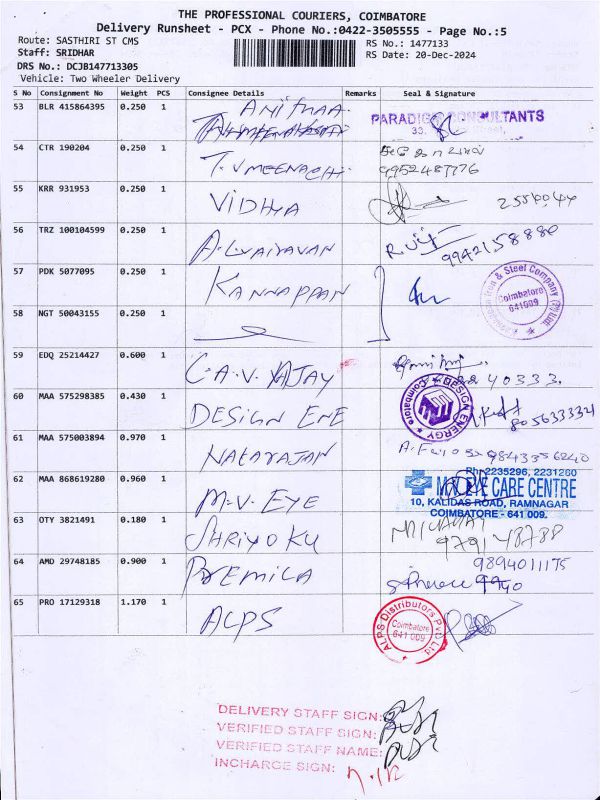 THE PROFESSIONAL COURIERS, COIMBATORE
Delivery Runsheet - PCX - Phone No.:0422-3505555 - Page No.:5
Route: SASTHIRI ST CMS
RS No.: 1477133
Staff: SRIDHAR
RS Date: 20-Dec-2024
DRS No.: DCJB147713305
Vehicle: Two Wheeler Delivery
S No Consignment No Weight PCS Consignee Details Remarks Seal & Signature
53 BLR 415864395 0.250 1 ANITHAA PARADIGM CONSULTANTS
33,
54 CTR 190204 0.250 1 T.V MEENACHI
9952487776
55 KRR 931953 0.250 1 VIDHYA
56 TRZ 100104599 0.250 1 9942158880
57 PDK 5077095 0.250 1 KANNAPPAN Iron & Steel Company (P) Ltd. Coimbatore 641 009
58 NGT 50043155 0.250 1
59 EDQ 25214427 0.600 1 C.A.V. VIJAY 40333.
60 MAA 575298385 0.430 1 DESIGN ENE DESIGN ENERGY Coimbatore 8056333324
61 MAA 575003894 0.970 1 NATARAJAN 9843356240
62 MAA 868619280 0.960 1 M.V. EYE Ph: 2235296, 2231260
EYE CARE CENTRE
10, KALIDAS ROAD, RAMNAGAR
COIMBATORE - 641 009.
63 OTY 3821491 0.180 1 SHRIYOKU
64 AMD 29748185 0.900 1 PREMILA 9894011175
65 PRO 17129318 1.170 1 ALPS ALPS Distributors Pvt Ltd. Coimbatore 641 009
DELIVERY STAFF SIGN:
VERIFIED STAFF SIGN:
VERIFIED STAFF NAME:
INCHARGE SIGN: